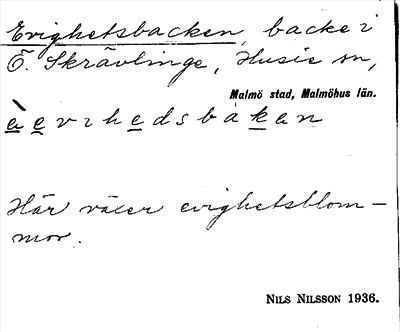 Evighetsbacken, backe i
Ö. Skrävlinge, Husie sn,
Malmö stad, Malmöhus län.
Här växer evighetsblom-
mor.
NILS NILSSON 1936.